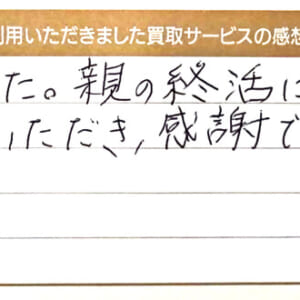 用いただきました買取サービスの感想
た。親の終活に
いただき,感謝で